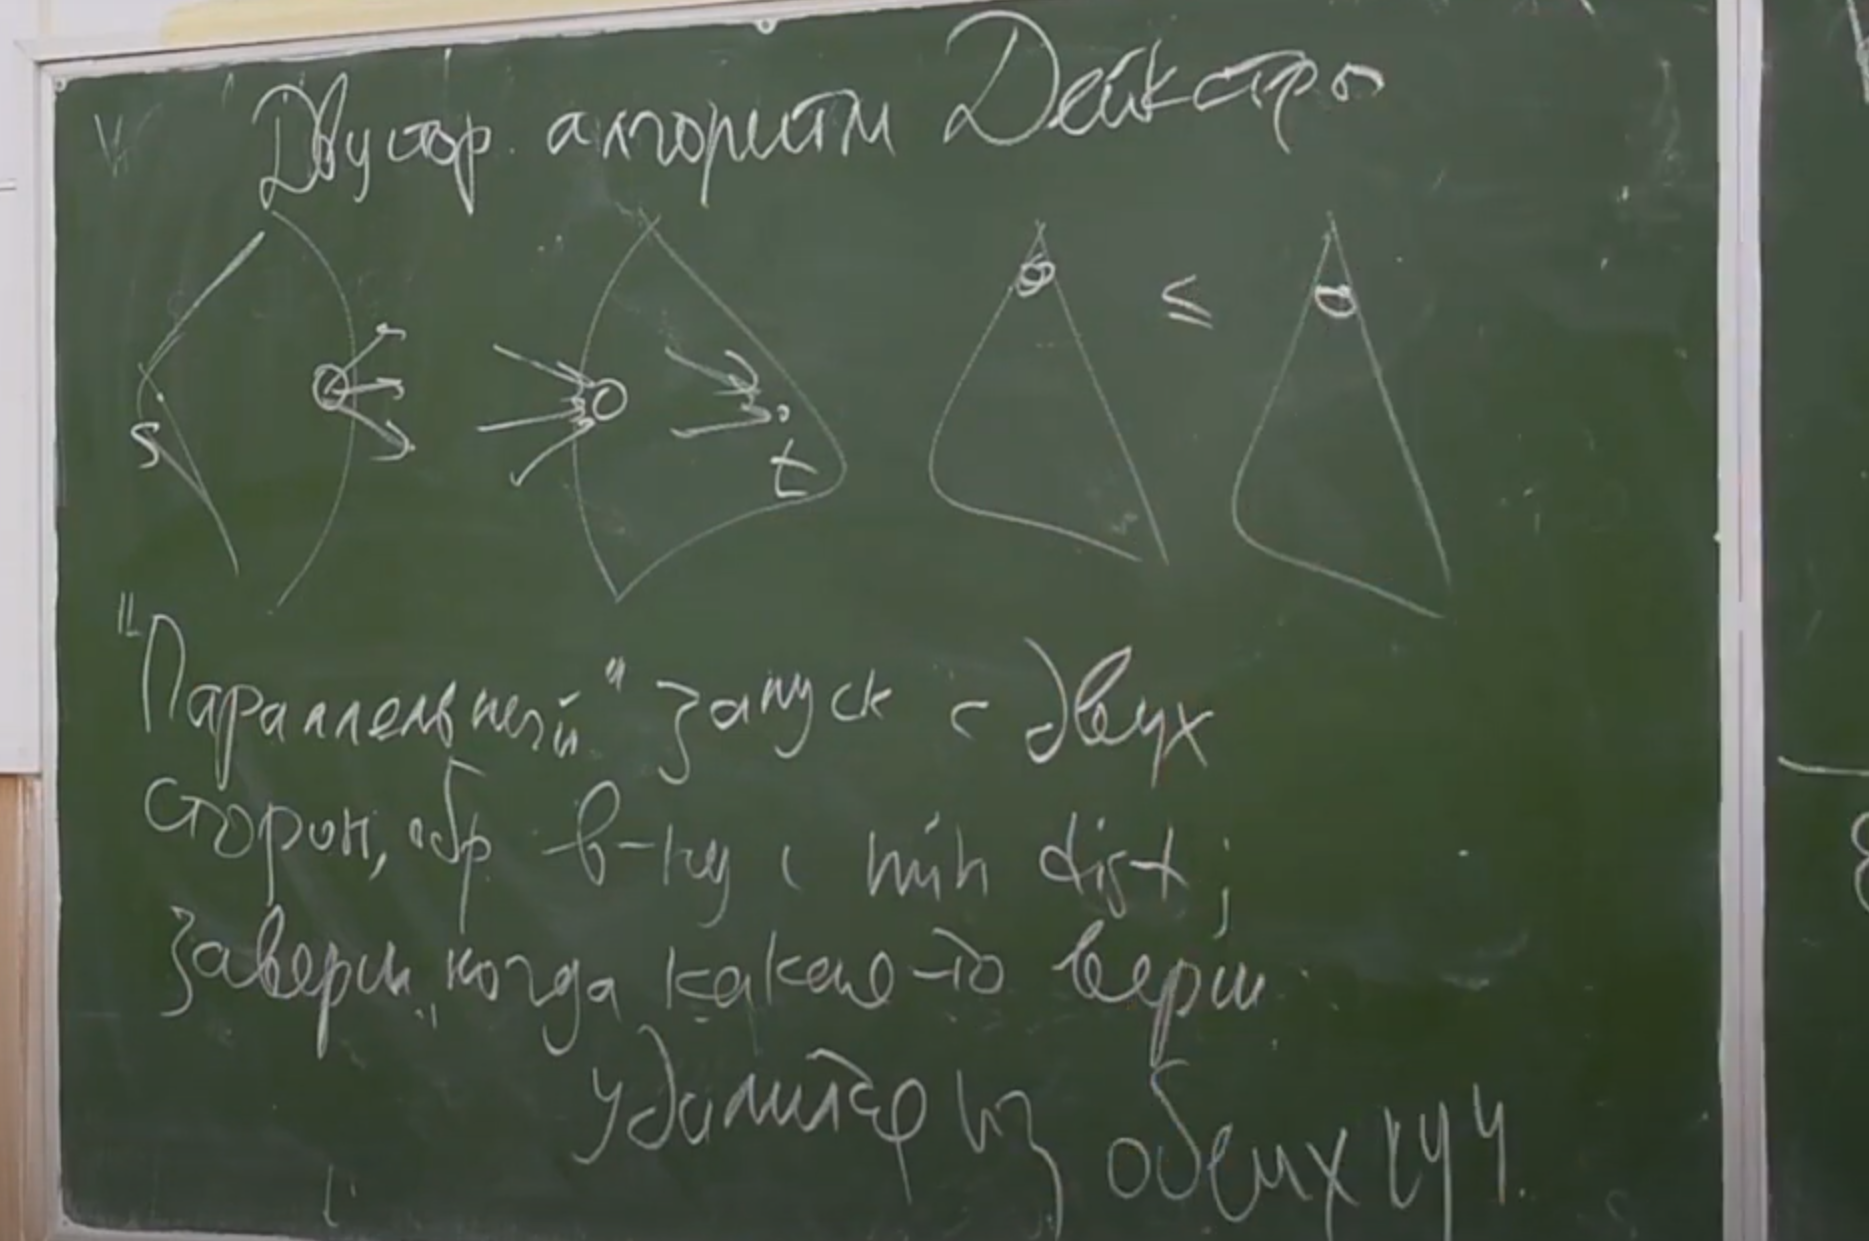 Двустор. алгоритм Дейкстры
s
t
≤
"Параллельный" запуск с двух
сторон, обр в-ну с min dist;
заверш., когда какая-то верш.
удалится из обеих куч.